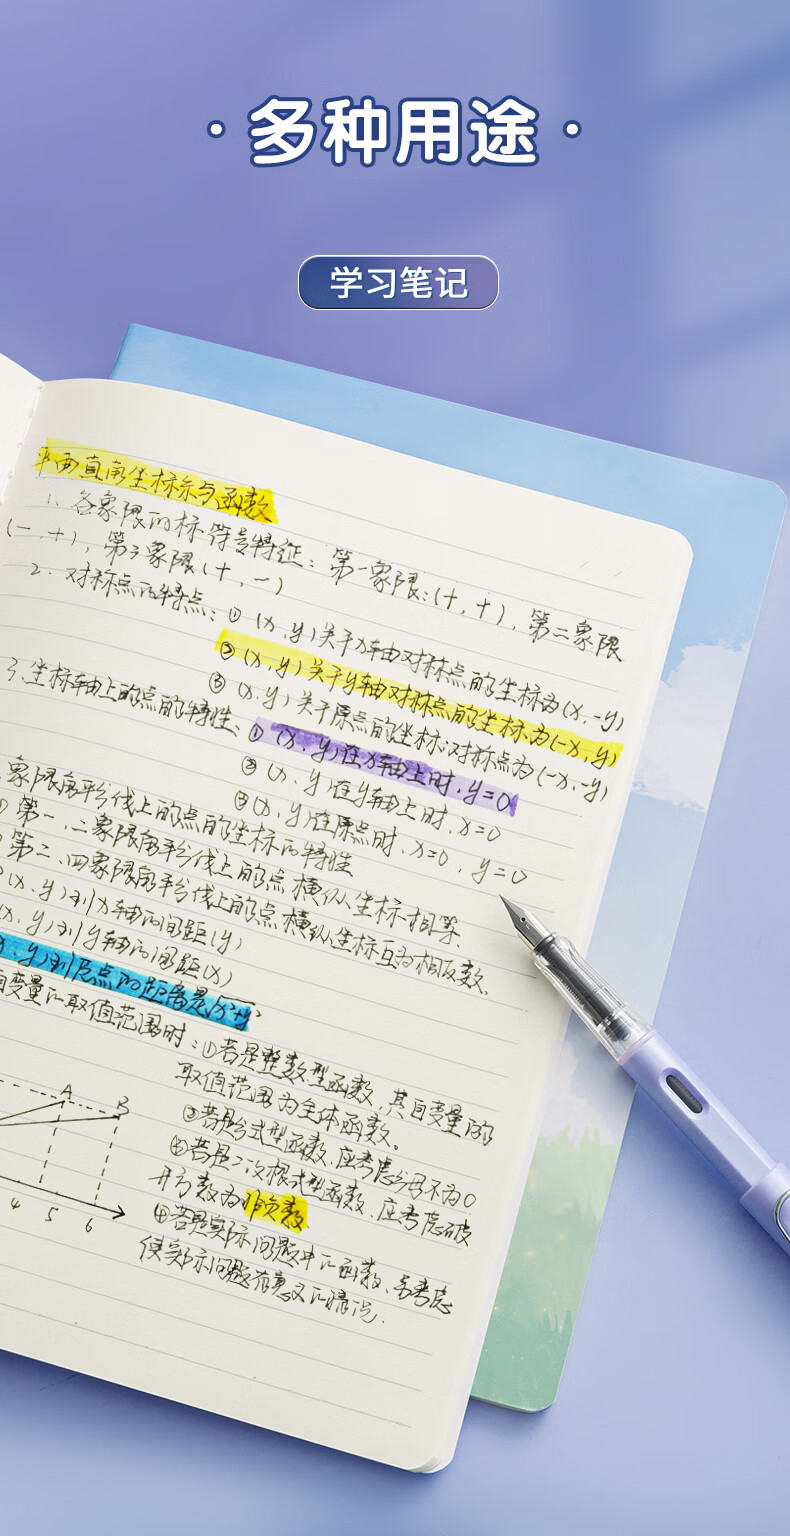 ·多种用途·
学习笔记
平面直角坐标系与函数
1、各象限的标符号特征：第一象限：(+,+)，第二象限
(-,+)，第三象限(+,-)
2、对称点的特点：① (x,y)关于x轴由对称点的坐标为(x,-y)
② (x,y)关于y轴由对称点的坐标为(-x,y)
③ (x,y)关于原点的坐标对称点为(-x,-y)
3.坐标轴上的点的特性、① (x,y)在x轴上时,y=0
② (x,y)在y轴上时,x=0
③ (x,y)在原点时,x=0,y=0
象限角平分线上的点的坐标的特性
第一、二象限角平分线上的点横纵坐标相等、
第二、四象限角平分线上的点横纵坐标互为相反数、
(x,y)到x轴的间距(y)
(x,y)到y轴的间距(x)
,y)到原点的距离是
自变量的取值范围时：①若是整数型函数,其自变量的
取值范围为全体函数。
②若是分式型函数,应考虑分母不为0
③若是二次根式型函数,应考虑被
开方数为非负数
④若是实际问题中的函数、需考虑
使实际问题有意义的情况.
A
B
4 5 6